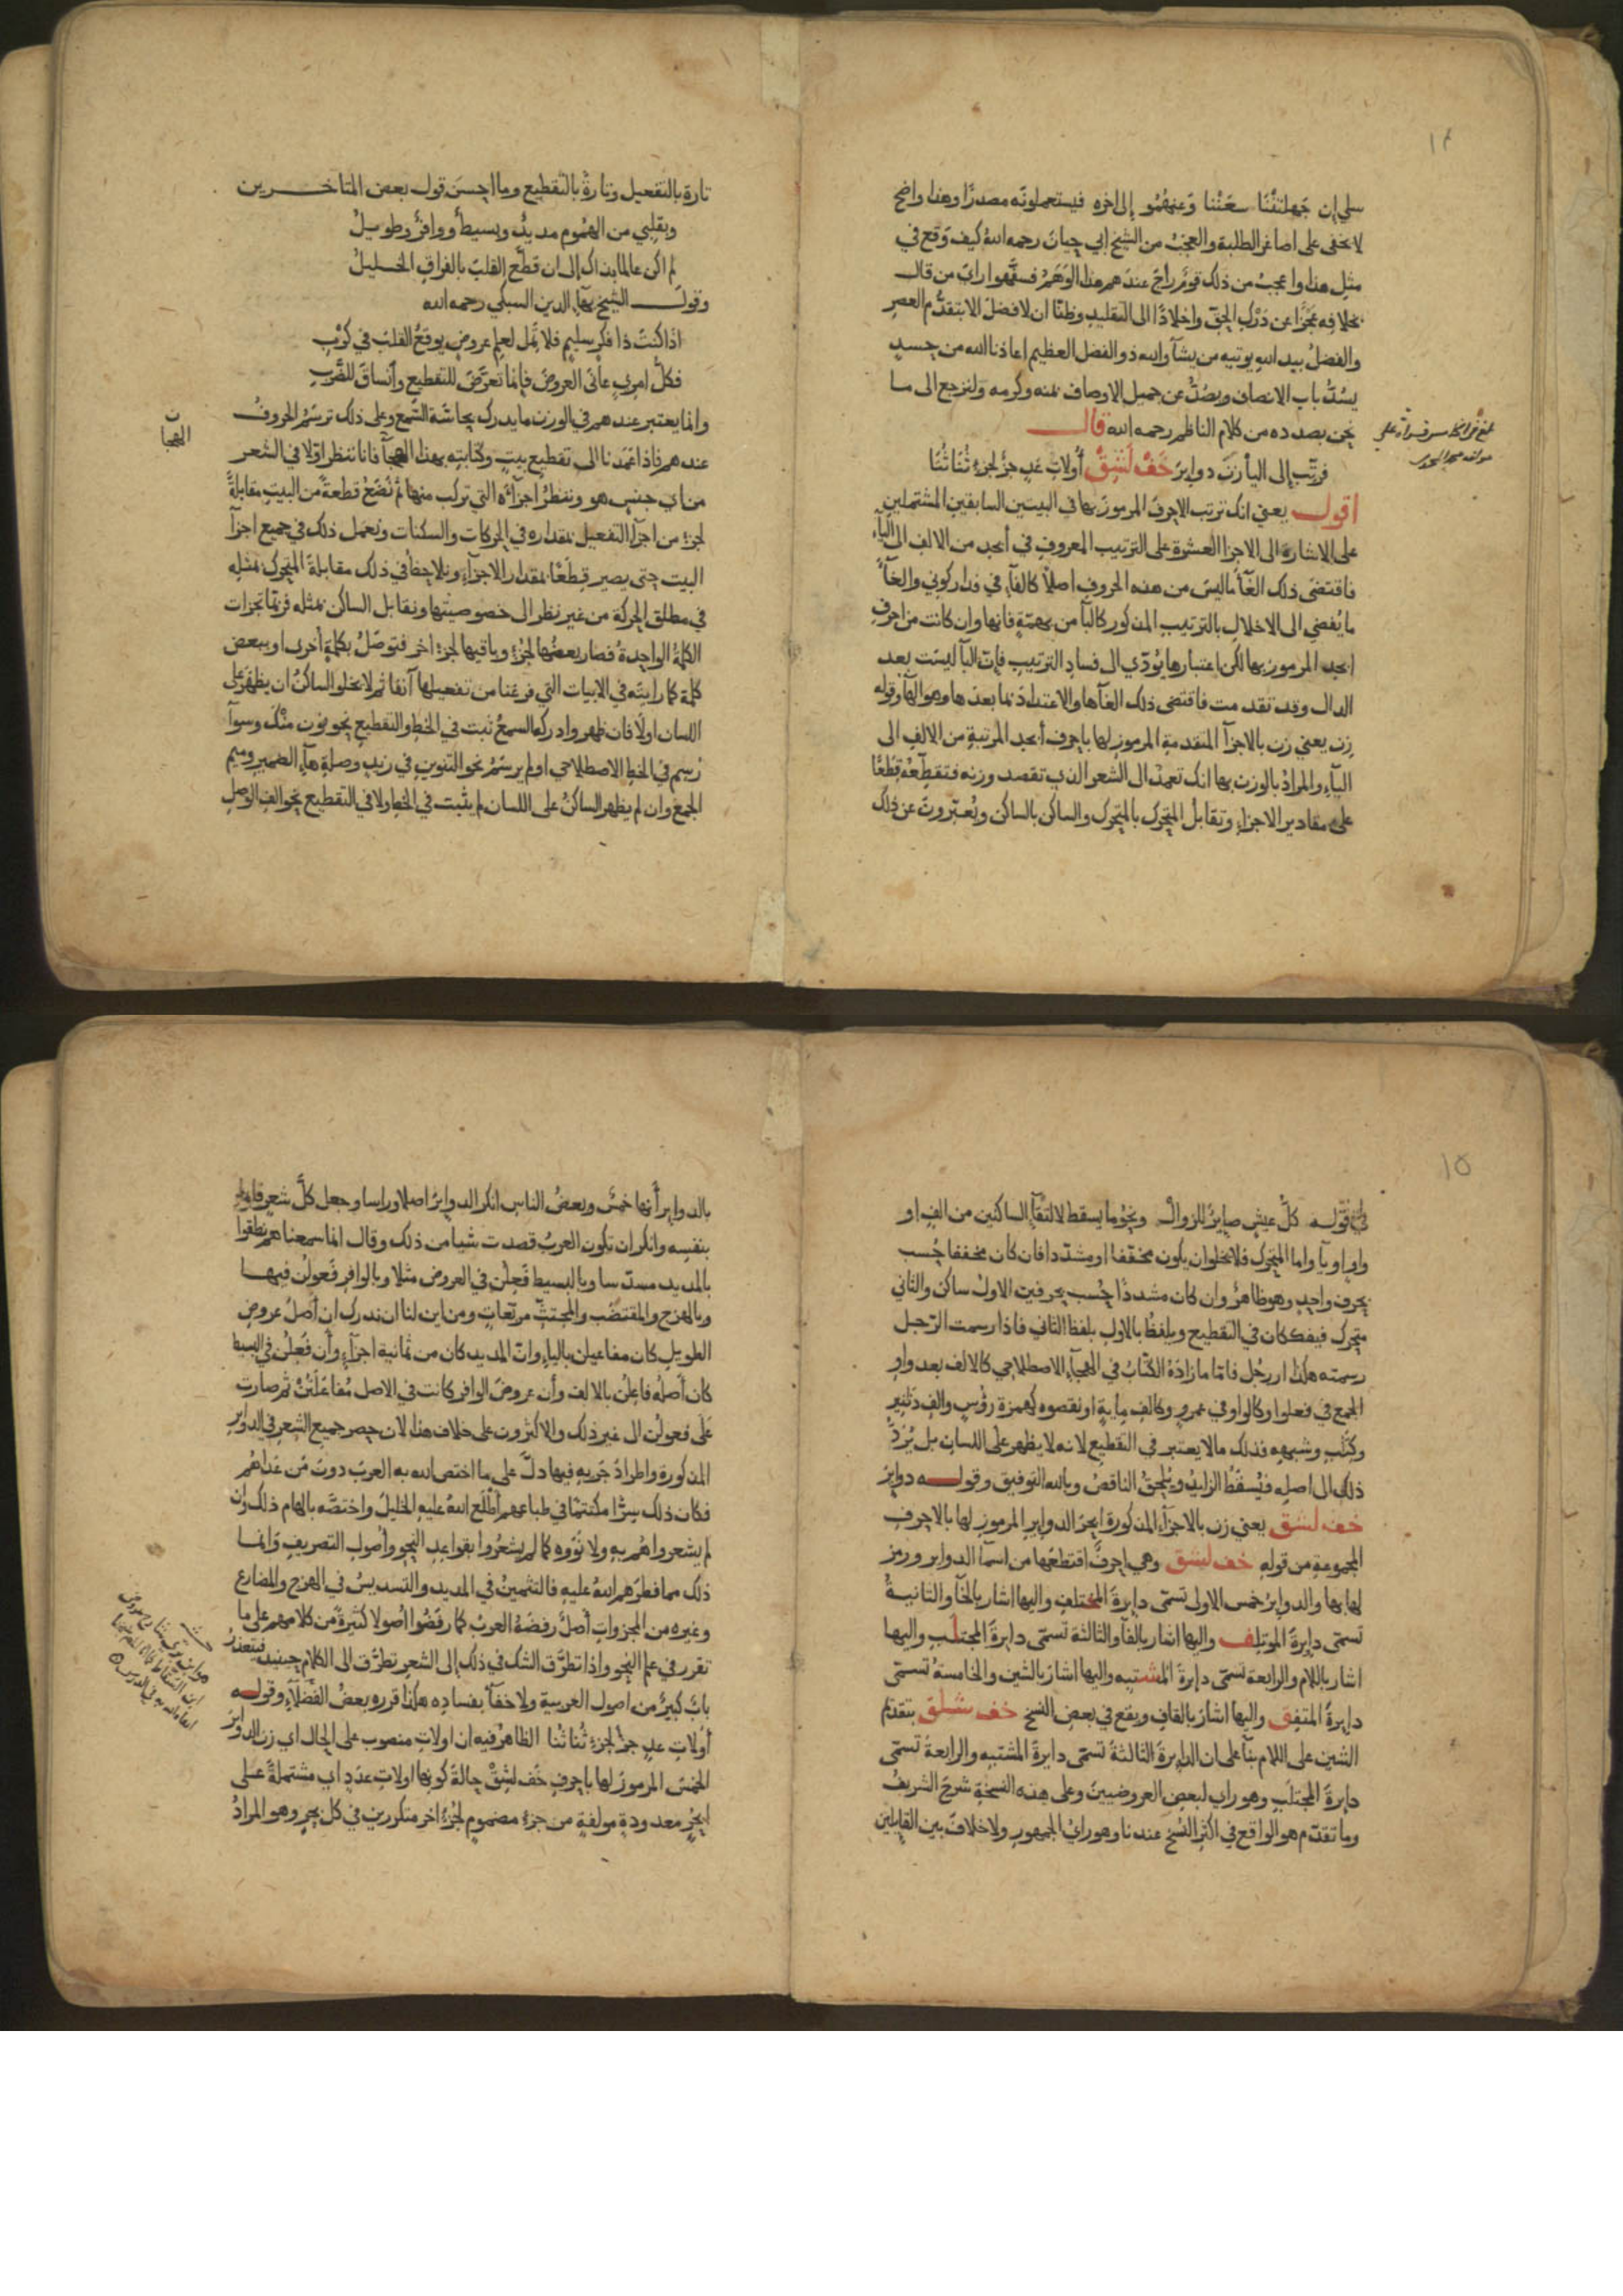 ١٤
سلي إن جهلتِنْنَا سعَنْنا وَعنهمُو إلى اخره فيستعملونه مصدرًا وهذا واضح
لا يخفى على اصاغر الطلبة والعجبُ من الشيخ ابي حيان رحمه الله كيف وقع في
مثل هذا واعجبُ من ذلك قومٌ راجَ عندهم هذا الوَهَمُ فسفّهوا رايَ من قال
بخلافه عجزًا عن دَرْكِ الحقّ واخلادًا الى التقليد وظنّا ان لا فضلَ الا بتقدُّم العصر
والفضلُ بيد الله يوتيه من يشآء والله ذو الفضل العظيم اعاذنا الله من حسدٍ
يسُدُّ باب الانصاف ويصُدُّ عن جميل الاوصاف بمنه وكرمه ولنرجع الى ما
نحن بصدده من كلام الناظم رحمه الله قال
فرتّب إلى اليا زِنْ دواير خَفْ لَشَقْ أُولاتِ عَدٍ جزٌ لجزءٍ ثُنَا ثُنَا
اقول يعني انك ترتب الاحرفَ المرموزَ بها في البيتين السابقين المشتملين
على الاشارة الى الاجزا العشرة على الترتيب المعروف في أبجد من الالف الى اليآء
فاقتضى ذلك الغآءَ ما ليسَ من هذه الحروف اصلًا كالفآء في فدار كوني والغآءَ
ما يُفضي الى الاخلالِ بالترتيبِ المذكور كالبآ من بهمّةٍ فانها وان كانت من احرفِ
ابجد المرموز بها لكن اعتبارها يُؤدّي الى فسادِ الترتيبِ فإنّ البآ ليست بعد
الدال وقد تقدمت فاقتضى ذلك الغآها والاعتدادَ بما بعدها وهو الهآ وقوله
زِن يعني زن بالاجزآ المتقدمةِ المرموز لها باحرف أبجد المرتبةِ من الالفِ الى
اليآءِ والمرادُ بالوزن بها انك تعمِدُ الى الشعر الذي تقصد وزنه فتقطّعُهُ قِطَعًا
على مقادير الاجزاءِ وتقابلُ المتحرك بالمتحرك والساكن بالساكن ويُعبّرونَ عن ذلك
تارة بالتفعيل وتارةً بالتقطيع وما احسنَ قولَ بعض المتاخرين
وبقلبي من الهمُوم مديدٌ وبسيطٌ ووافرٌ وطويلُ
لم اكن عالما بذاك إلى ان قطّع القلبَ بالفراقِ الخليلُ
وقول الشيخ بهآءِ الدين السبكي رحمه الله
اذا كنتَ ذا فكرٍ سليمٍ فلا تَمل لعِلمِ عروضٍ يوقعُ القلبَ في كَرْبِ
فكلُّ امرئٍ عانَى العروضَ فإنما تعرَّضَ للتقطيع وأنساقَ للضّربِ
وانما يعتبر عندهم في الوزن ما يدرك بحاسَّة السَّمع وعلى ذلك ترسَمُ الحروفُ
عندهم فاذا عَمَدنا الى تقطيع بيتٍ وكتابتهِ بهذا الهجآ فانا ننظر اوّلا في الشعر
الهجآ ن
من اي جنسٍ هو وننظرُ اجزآءَه التي تركب منها ثم نَضَعُ قطعةً من البيتِ مقابلةً
لجزءٍ من اجزآءِ التفعيل بمقداره في الحركات والسكنات ونعمل ذلك في جميع اجزآ
البيت حتى يصير قِطَعًا بمقدار الاجزآءِ ونلاحظ في ذلك مقابلةَ المتحرك بمثلهِ
في مطلق الحركة من غير نظر الى خصوصيتها ونقابل الساكن بمثله فربّما تجزات
الكلمةُ الواحدةُ فصار بعضُها لجزءٍ وباقيها لجزءٍ اخر فتوصَلُ بكلمةٍ أخرى او ببعض
كلمة كما رايتَه في الابيات التي فرغنا من تفعيلها آنفا ثم لا يخلو الساكنُ ان يظهرَ على
اللسان اولا فان ظهر وادركه السمعُ ثبت في الخطِ والتقطيع نحو نون منْك وسوآ
رُسِم في الخطِ الاصطلاحي او لم يرسَمْ نحو التنوين في زيدٍ وصلةِ هآءِ الضميرِ وميم
الجمعِ وان لم يظهر الساكنُ على اللسان لم يثبت في الخطِ ولا في التقطيع نحو الفِ الوصلِ
١٥
في قوله كلُّ عيشٍ صايرٌ للزوالْ ونحو ما يسقط لالتقآءِ الساكنين من الفٍ او
واوٍ او يآءٍ واما المتحرك فلا يخلو ان يكون مخففا او مشدّدا فان كان مخففا حُسب
بحرف واحدٍ وهو ظاهرٌ وان كان مشددًا حُسب بحرفين الاولُ ساكن والثاني
متحرك فيفكّان في التقطيع ويلفظُ بالاول بلفظ الثاني فاذا رسمت الرّجل
رسمته هكذا اررجُل فاما ما زادهُ الكُتّابُ في الهجآءِ الاصطلاحي كالالف بعد واوِ
الجمع في فعلوا وكالواو في عَمرٍو وكالفِ مايةٍ او نقصوه كهمزة رؤسٍ والفِ دَنَنيرِ
وكتبٍ وشبههِ فذلك مما لا يعتبر في التقطيع لانه لا يظهر على اللسان بل يُرَدُّ
ذلك الى اصله فيُسقَطُ الزايدُ ويُلحقُ الناقصُ وبالله التوفيق وقوله دواير
خف لشق يعني زن بالاجزآءِ المذكورةِ ابحرَ الدوايرِ المرموز لها بالاحرفِ
المجموعة من قوله خف لشق وهي احرفٌ اقتطعَها من اسمآ الدوايرِ ورمز
لها بها والدوايرُ خمس الاولى تسمّى دايرةَ المختلفِ واليها اشار بالخآءِ والثانيةُ
تسمى دايرةَ الموتلِف واليها اشار بالفآءِ والثالثة تسمّى دايرةَ المجتلَب واليها
اشار باللام والرابعة تسمّى دايرةَ المشتبِه واليها اشارَ بالشين والخامسةُ تسمّى
دايرةَ المتفِق واليها اشارَ بالقافِ ويقع في بعض النسخ خف شلق بتقديم
الشين على اللام بنآءً على ان الدايرةَ الثالثةَ تسمّى دايرةَ المشتبهِ والرابعةُ تسمّى
دايرةَ المجتلَبِ وهو راي لبعضِ العروضيينَ وعلى هذه النسخةِ شرحَ الشريفُ
وما تقدّم هو الواقع في اكثر النُسخ عندنا وهو رايُ الجمهورِ ولا خلافَ بين القايلين
بالدواير أنها خمسٌ وبعضُ الناس انكر الدوايرَ اصلا وراسا وجعل كلّ شعرٍ قايما
بنفسِه وانكر ان تكون العربُ قصدت شيا من ذلك وقال انما سمعناهم نطقوا
بالمديد مسدّسا وبالبسيط فَعِلُن في العروض مثلا وبالوافرِ فَعولُن فيها
وبالهزج والمقتضَب والمجتثّ مربّعاتٍ ومن اين لنا ان ندرك ان أصلَ عروضِ
الطويل كان مفاعيلن بالياءِ وانّ المديد كان من ثمانية اجزآءٍ وأن فَعِلُن في البسيط
كان أصلُه فاعِلُن بالالف وأن عروضَ الوافر كانت في الاصل مُفاعَلَتُنْ ثم صارت
على فعولن الى غير ذلك والاكثرون على خلاف هذا لان حصر جميع الشعر في الدواير
المذكورة واطرادَ جَريهِ فيها دلّ على ما اختص الله به العربَ دونَ مَن عَداهُم
فكان ذلك سِرًّا مكتتمًا في طباعهم أطْلَع اللهُ عليه الخليلَ واختصَّه بالهام ذلك وان
لم يشعروا هُم به ولا نَوَوه كما لم يشعُروا بقواعدِ النحوِ وأصولِ التصريفِ وانما
ذلك مما فطرَهم اللهُ عليهِ فالتثمينُ في المديد والتسديسُ في الهزج والمضارع
وغيره من المجزواتِ أصلٌ رفضَهُ العربُ كما رفَضُوا اصُولا كثيرةً من كلامهم على ما
تقرر في علم النحو واذا تطرّق الشك في ذلك إلى الشعر تطرّق الى الكلام حينئذ فيتعذرُ
بابٌ كبيرٌ من اصول العربية ولا خفآءَ بفساده هكذا قرره بعضُ الفُضَلآءِ وقوله
أُولاتِ عدٍ جزٌ لجزءٍ ثُنا ثُنا الظاهرُ فيه ان اولاتِ منصوب على الحال اي زن الدوايرَ
الخمسَ المرموز لها باحرفِ خَف لشقْ حالةَ كونها اولاتِ عدَدٍ اي مشتملةً على
ابحُرٍ معدودةٍ مولفةٍ من جزءٍ مضمومٍ لجُزءٍ اخر متكررين في كل بحرٍ وهو المرادُ